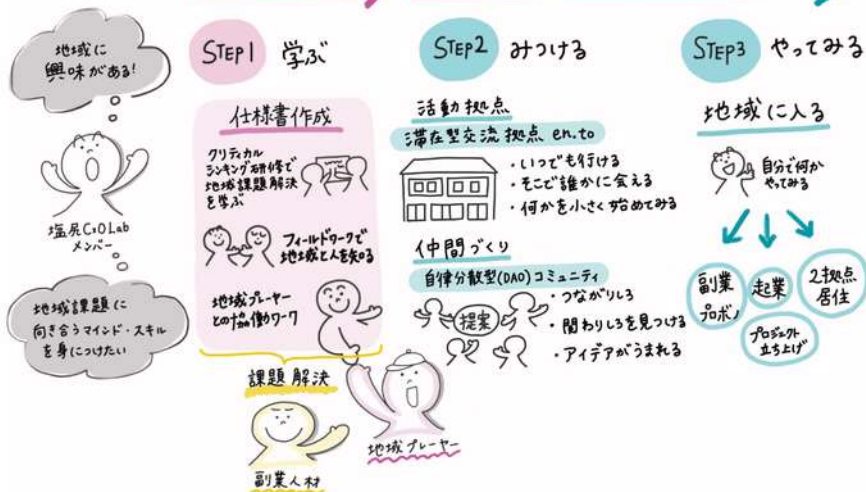 地域に
興味がある!
塩尻CxO Lab
メンバー
地域課題に
向き合うマインド・スキル
を身につけたい
STEP1 学ぶ
仕様書作成
クリティカル
シンキング研修で
地域課題解決
を学ぶ
フィールドワークで
地域と人を知る
地域プレーヤー
との協働ワーク
課題解決
副業人材
地域プレーヤー
STEP2 みつける
活動拠点
滞在型交流拠点 en.to
・いつでも行ける
・そこで誰かに会える
・何かを小さく始めてみる
仲間づくり
自律分散型(DAO)コミュニティ
提案
・つながりしろ
・関わりしろを見つける
・アイデアがうまれる
STEP3 やってみる
地域に入る
自分で何か
やってみる
副業
プロボノ
起業
2拠点
居住
プロジェクト
立ち上げ